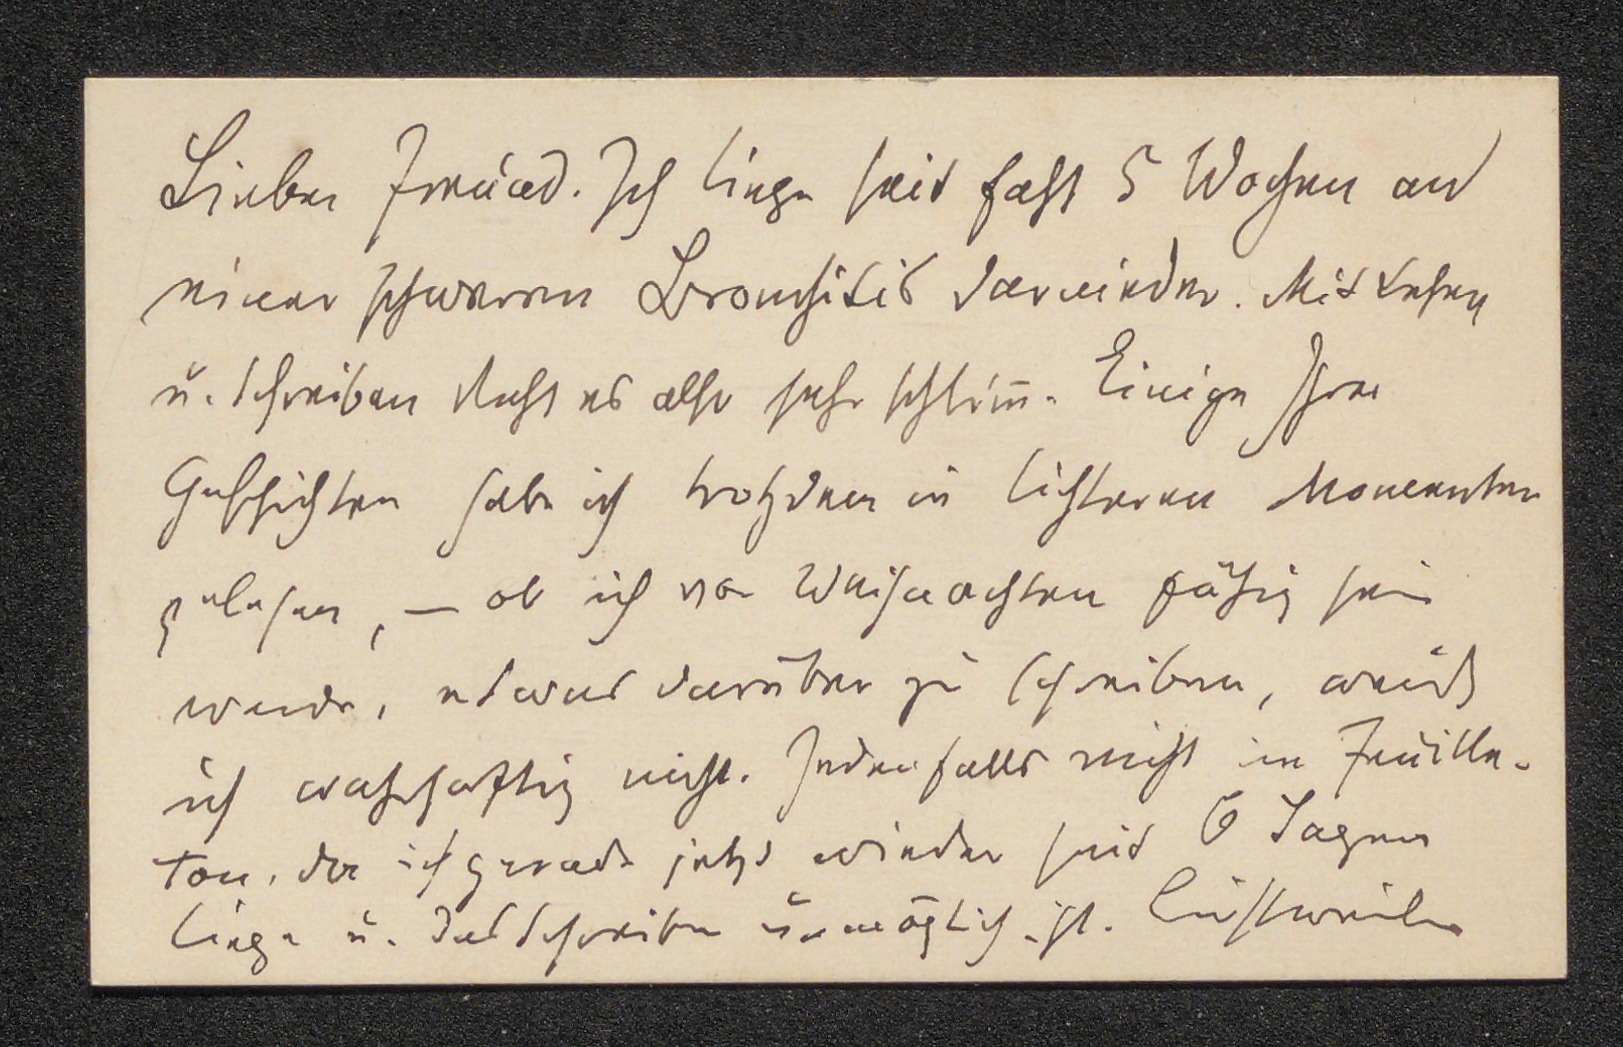 Lieber Freund. Ich liege seit fast 5 Wochen an
einer schweren Bronchitis darnieder. Mit Lesen
u. Schreiben steht es also sehr schlim̅. Einige Ihrer
Geschichten habe ich trotzdem in lichteren Momenten
gelesen, — ob ich vor Weihnachten fähig sein
werde, etwas darüber zu schreiben, weiß
ich wahrhaftig nicht. Jedenfalls nicht im Feuille-
ton, da ich gerade jetzt wieder seit 6 Tagen
liege u. das Schreiben unmöglich ist. Einstweilen